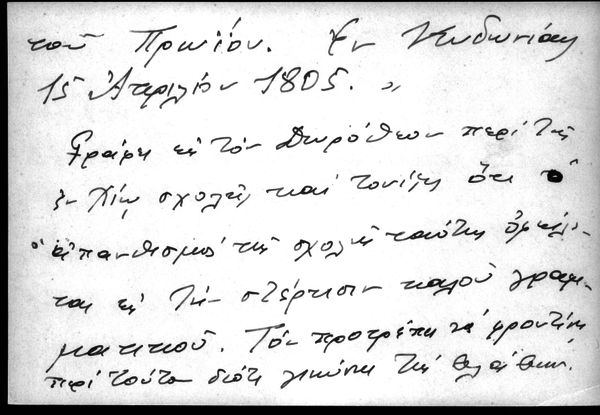 τοῦ Πρωΐου. Ἐν Κυδωνίαις
15 Ἀπριλίου 1805. "
Γράφει εἰς τὸν Δωρόθεον περὶ τῆς
ἐν Χίῳ σχολῆς καὶ τονίζει ὅτι ὁ
ἀπανθισμὸς τῆς σχολῆς ταύτης ὀφείλε-
ται εἰς τὴν στέρησιν καλοῦ γραμ-
ματικοῦ. Τὸν προτρέπει νὰ φροντίσῃ
περὶ τούτου διότι